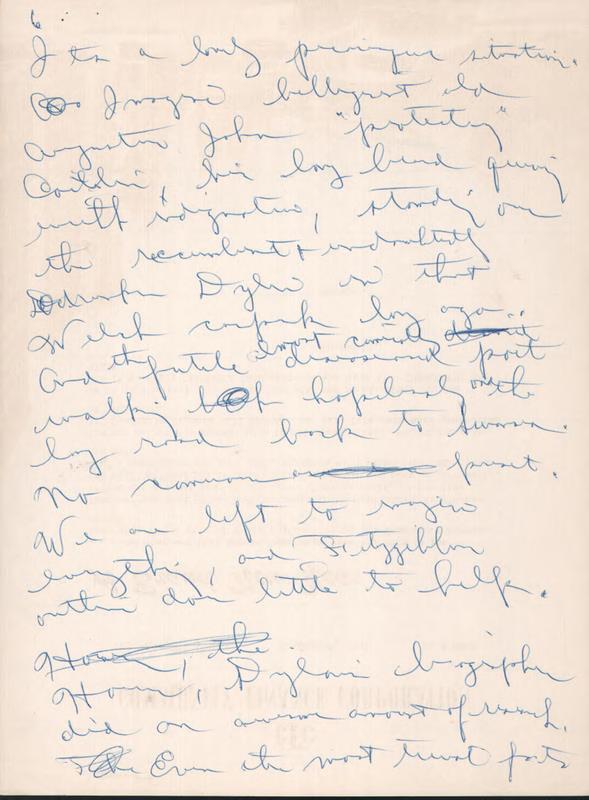 6
It is a lovely picaresque situation.
Imagine belligerent old
Augustus John "protecting"
Caitlin, his long beard quivering
with indignation, standing over
the recumbent & undoubtedly
drunken Dylan in that
Welsh carpark long ago..
And the futile almost comically dismissed poet
walking hopelessly on the
long road back to Swansea.
No summons
We are left to imagine
everything, and Fitzgibbon
outline does little to help.
However, Dylan's biographer
did an awesome amount of research.
Even the most trivial facts